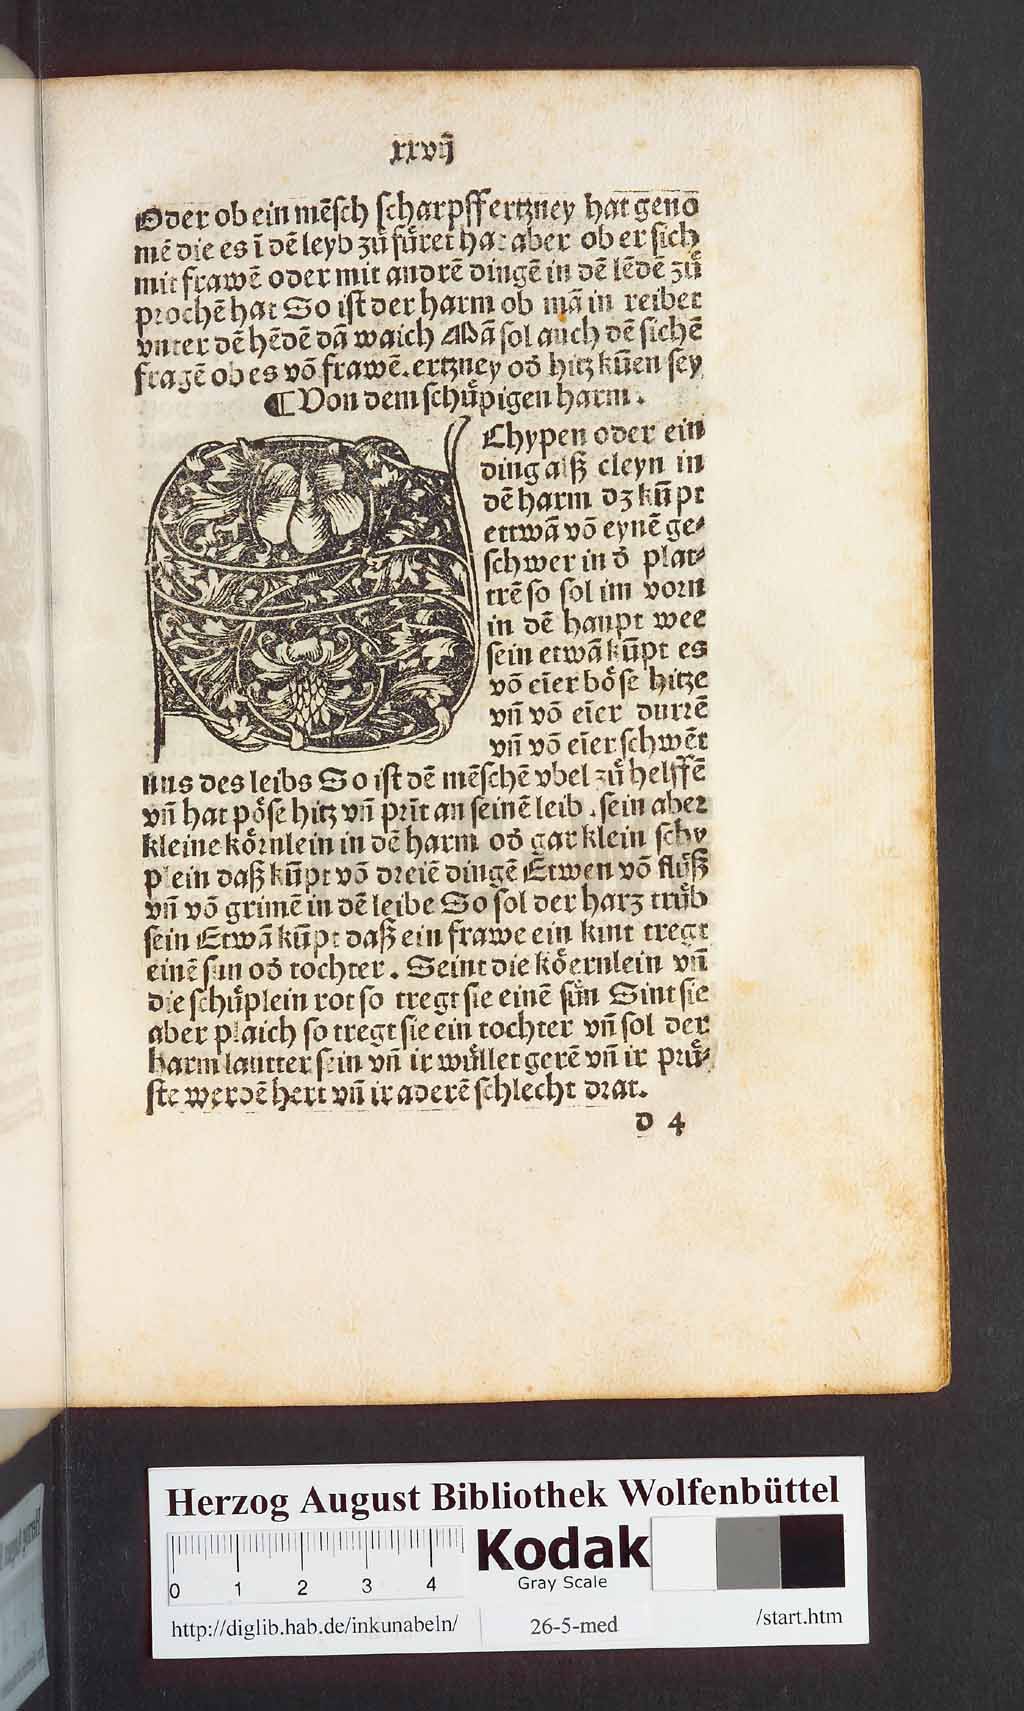 xxvij
Oder ob ein mēsch scharpff ertzney hat genō
mē die es ī dē leyb zů fůret hat aber ob er sich
mit frawē oder mit andrē dingē in dē lēdē zů
prochē hat So ist der harm ob mā in reibet
vnter dē hēdē dā waich Mā sol auch dē sichē
fragē ob es vō frawē. ertzney od̄ hitz kūen sey
¶ Von dem schůpigen harm.
S Chypen oder ein
ding alß cleyn in
dē harm dz kūpt
ettwā vō eynē ge⸗
schwer in d̄ plat⸗
trē so sol im vorn
in dē haupt wee
sein etwā kūpt es
vō eīer böse hitze
vn̄ vō eīer durrē
vn̄ vō eīer schwēt
nus des leibs So ist dē mēschē vbel zů helffē
vn̄ hat pöse hitz vn̄ prīt an seinē leib. sein aber
kleine körnlein in dē harm od̄ gar klein schv
plein daß kūpt vō dreiē dingē Etwen vō flůß
vn̄ vō grimē in dē leibe So sol der harz trůb
sein Etwā kūpt daß ein frawe ein kint tregt
einē sun od̄ tochter. Seint die köernlein vn̄
die schůplein rot so tregt sie einē sůn Sint sie
aber plaich so tregt sie ein tochter vn̄ sol der
harm lautter sein vn̄ ir wůllet gerē vn̄ ir prů⸗
ste werdē hert vn̄ ir aderē schlecht drat.
d 4
Herzog August Bibliothek Wolfenbüttel
0 1 2 3 4
Kodak
Gray Scale
http://diglib.hab.de/inkunabeln/ 26-5-med /start.htm